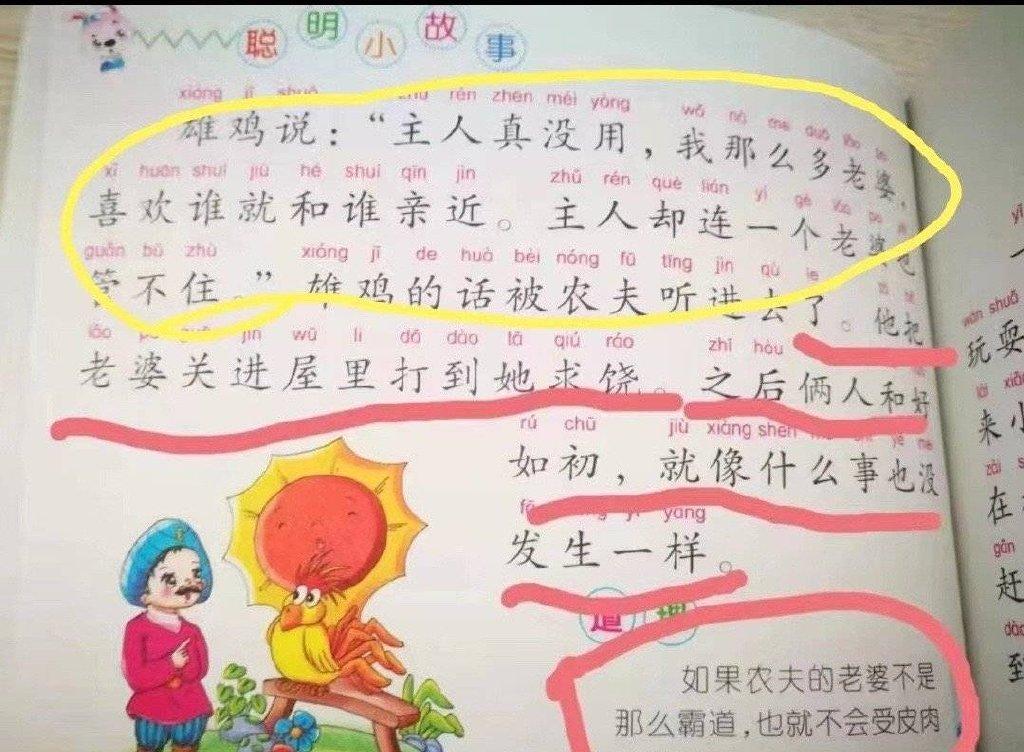 聪明小故事
xióng jī shuō zhǔ rén zhēn méi yòng wǒ nà me duō lǎo
雄鸡说：“主人真没用，我那么多老婆，
xǐ huān shuí jiù hé shuí qīn jìn zhǔ rén què lián yí gè lǎo pó
喜欢谁就和谁亲近。主人却连一个老婆也
guǎn bú zhù xióng jī de huà bèi nóng fū tīng jìn qù le
管不住。”雄鸡的话被农夫听进去了。他把
lǎo pó guān jìn wū lǐ dǎ dào tā qiú ráo zhī hòu
老婆关进屋里打到她求饶。之后俩人和好
rú chū jiù xiàng shén me shì yě méi
如初，就像什么事也没
yí yàng
发生一样。
道理
如果农夫的老婆不是
那么霸道，也就不会受皮肉
wán shuǎ
玩耍
来小
zài
在
gǎn
赶
到